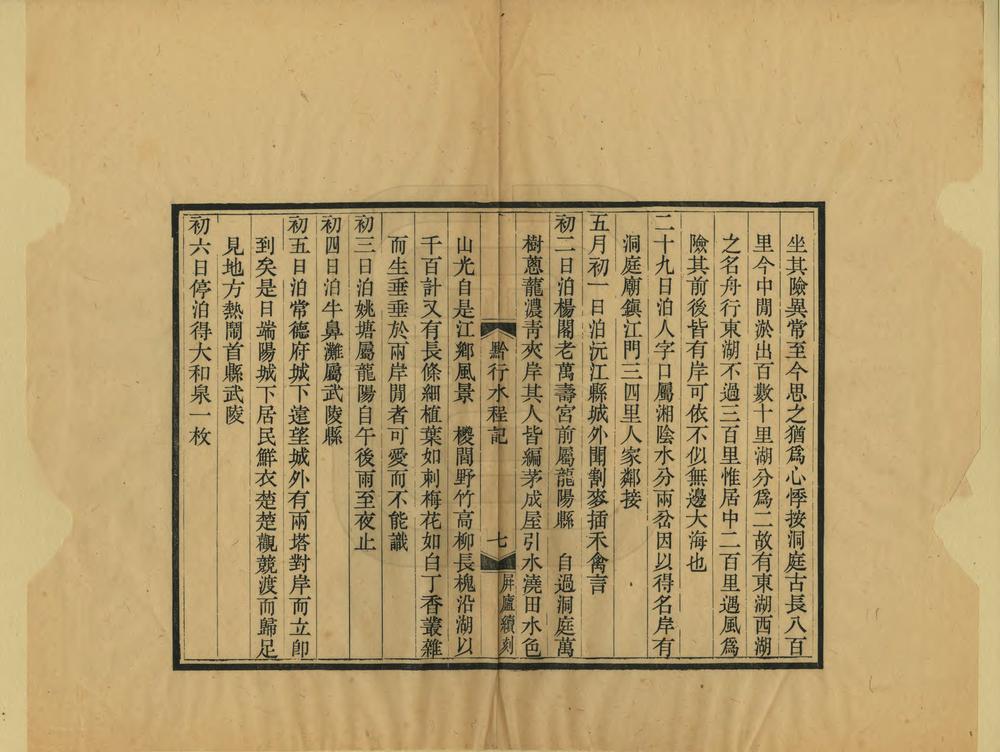 坐其險異常至今思之猶爲心悸按洞庭古長八百
里今中閒淤出百數十里湖分爲二故有東湖西湖
之名舟行東湖不過三百里惟居中二百里遇風爲
險其前後皆有岸可依不似無邊大海也
二十九日泊人字口屬湘陰水分兩岔因以得名岸有
洞庭廟鎭江門三四里人家鄰接
五月初一日泊沅江縣城外聞割麥插禾禽言
初二日泊楊閣老萬壽宮前屬龍陽縣 自過洞庭萬
樹蔥蘢濃青夾岸其人皆編茅成屋引水澆田水色
黔行水程記 七 屏廬續刻
山光自是江鄉風景 櫻間野竹高柳長槐沿湖以
千百計又有長條細植葉如刺梅花如白丁香叢雜
而生垂垂於兩岸閒者可愛而不能識
初三日泊姚塘屬龍陽自午後雨至夜止
初四日泊牛鼻灘屬武陵縣
初五日泊常德府城下遠望城外有兩塔對岸而立卽
到矣是日端陽城下居民鮮衣楚楚觀競渡而歸足
見地方熱鬧首縣武陵
初六日停泊得大和泉一枚